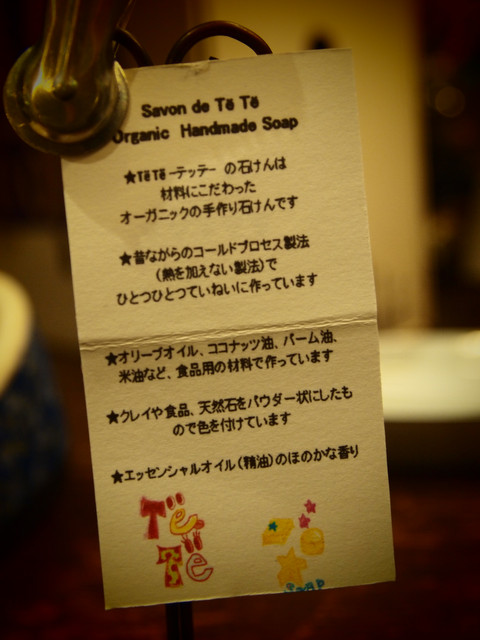 Savon de Tё Tё
Organic Handmade Soap
★TёTё-テッテ- の石けんは
材料にこだわった
オーガニックの手作り石けんです
★昔ながらのコールドプロセス製法
(熱を加えない製法)で
ひとつひとつていねいに作っています
★オリーブオイル、ココナッツ油、パーム油、
米油など、食品用の材料で作っています
★クレイや食品、天然石をパウダー状にしたも
ので色を付けています
★エッセンシャルオイル(精油)のほのかな香り
Të
Të
soap